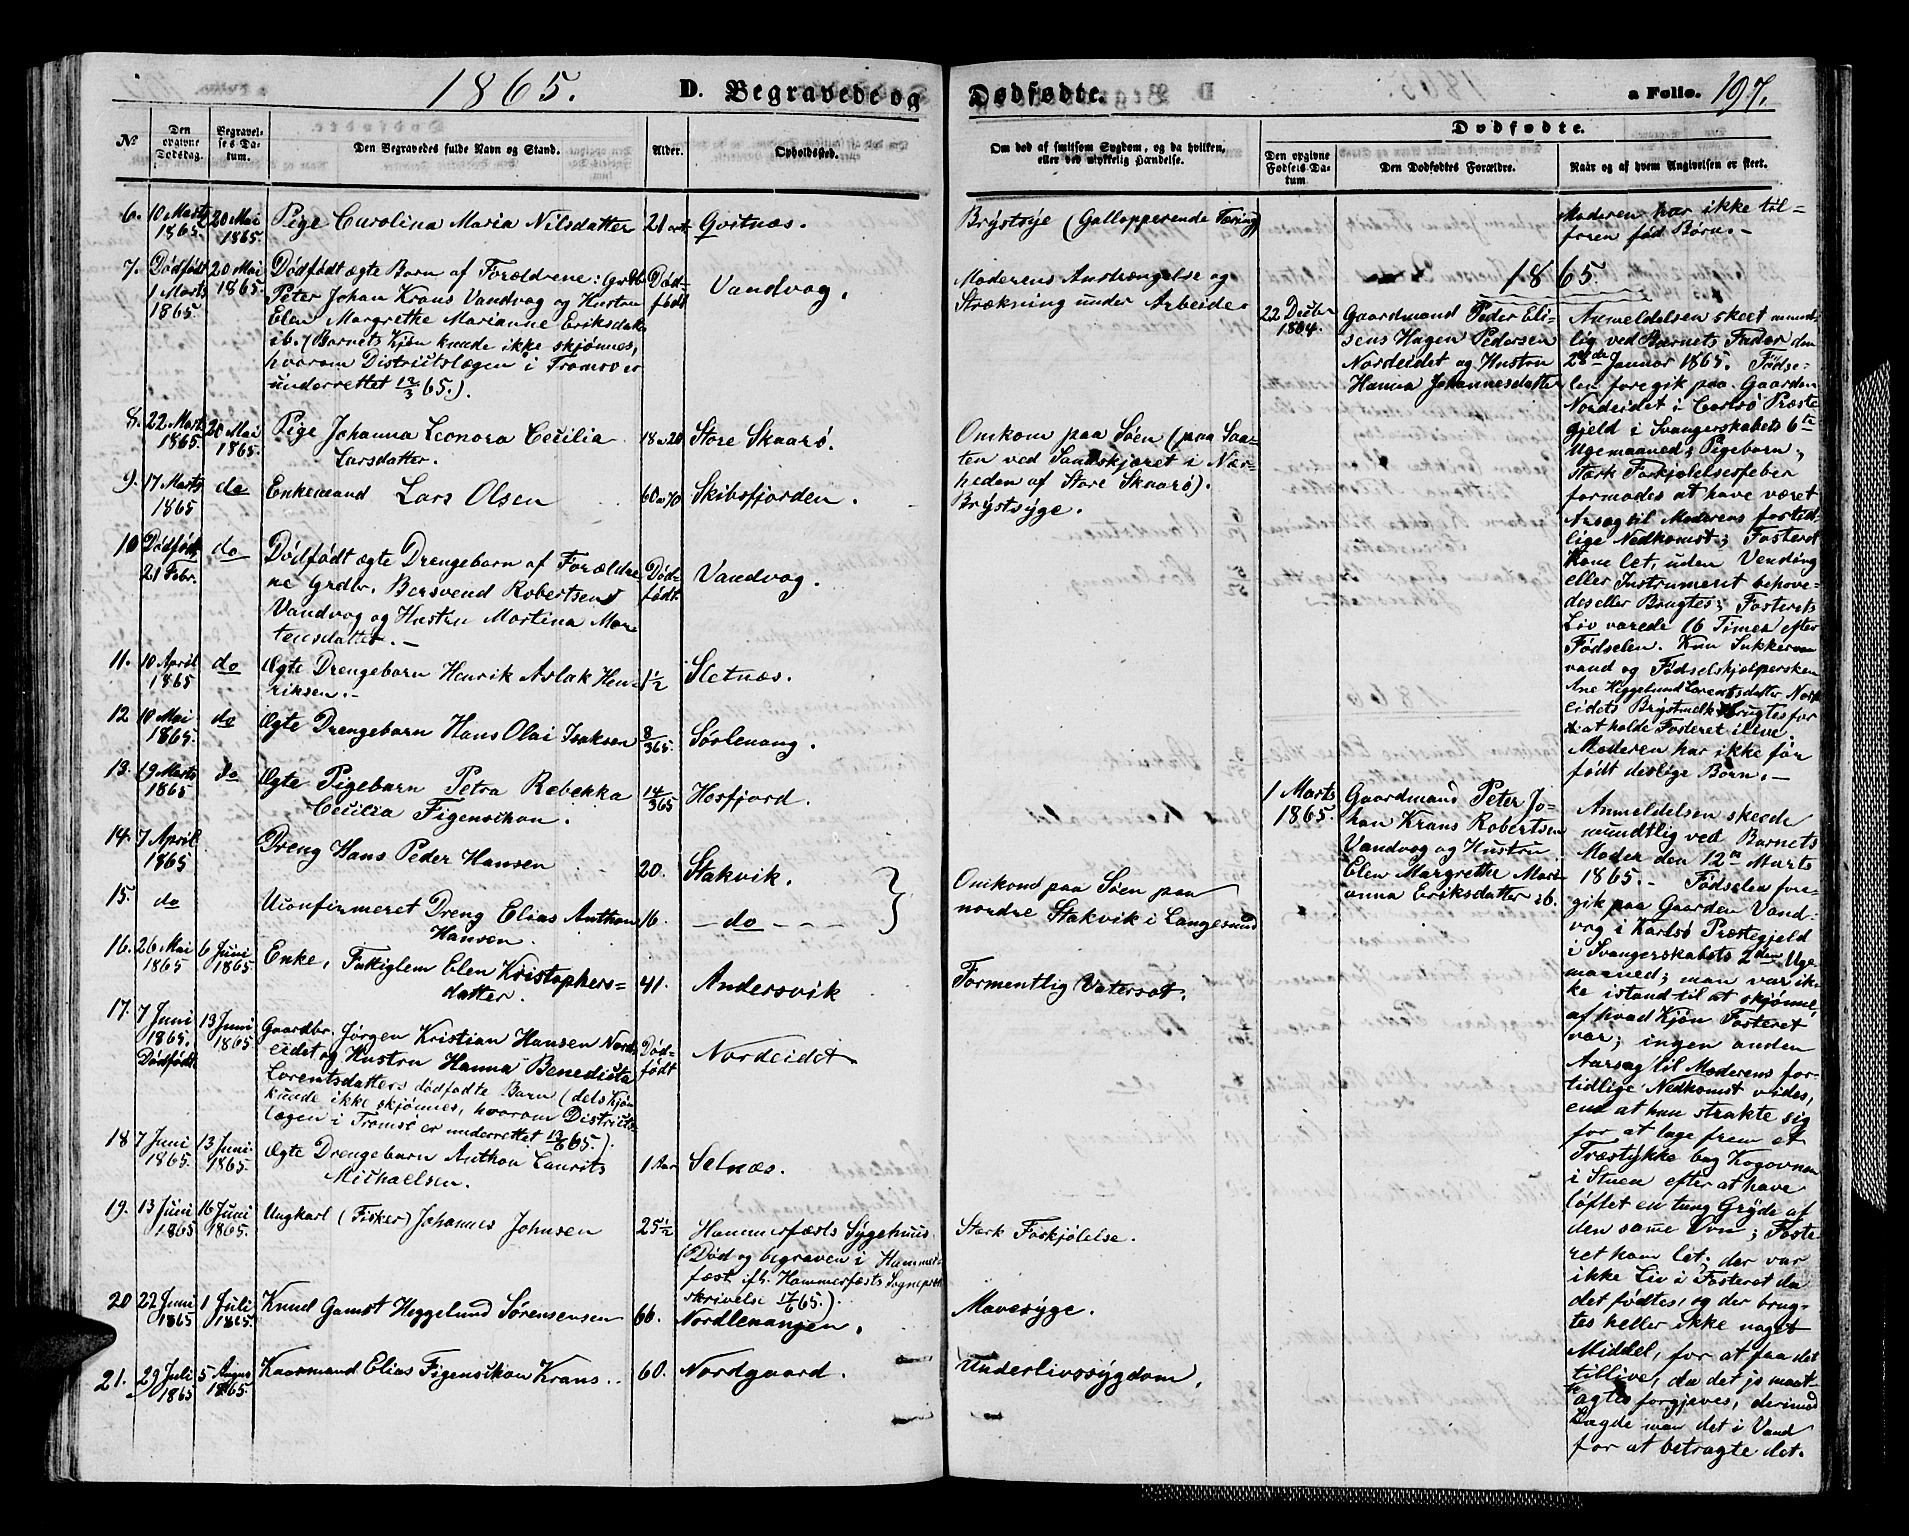 1865.
D. Begravede og
Dødfødte.
a Folio. 197.
No
Den opgivne Dødsdag.
Begravelses Datum.
Den Begravedes fulde Navn og Stand.
Alder.
Opholdssted.
Om død af smitsom Sygdom, og da hvilken,
eller ved ulykkelig Hændelse.
Dødfødte.
Den opgivne Fødsels Datum
Den Dødfødtes Forældre.
Naar og af hvem Angivelsen er skeet.
6. 10 Marts 1865. 20 Mai 1865. Pige Carolina Maria Nilsdatter 21 Gvitnæs.
7. Dødfødt 1 Marts 1865 20 Mai 1865. Dødfødt ægte Barn af Forældrene: Grdbr
Peter Johan Krans Vandvog og Hustru
Elen Margrethe Marianne Eriksdatter
ib. (Barnets Kjøn kunde ikke skjønnes,
hvorom Districtslægen i Tromsø er
underrettet 12/3 65.).
Dødfødt
Vandvog.
8. 22 Marts 1865. 20 Mai 1865. Pige Johanna Leonora Cecilia
Larsdatter.
18 a 20 Store Skaarø.
9. 17 Marts 1865 do Enkemand Lars Olsen 60 a 70 Skibsfjorden.
10 Dødfødt 21 Febr. do Dødfødt ægte Drengebarn af Forældre
ne Grdbr. Bersvend Robertsen
Vandvog og Hustru Martina Mor
tensdatter.-
Dødfødt. Vandvog.
11. 10 April 1865 do Ægte Drengebarn Henrik Aslak Hen-
riksen.-
1½ Sletnæs.
12 18 Mai 1865. do Ægte Drengebarn Hans Olai Isaksen 8/365. Sørlenang.
13. 19 Marts 1865 do Ægte Pigebarn Petra Rebekka
Cecilia Figenschou.
14/365 Hesfjord.
14. 7 April 1865 Dreng Hans Peder Hansen 20. Stakvik.
15. do Uconfirmeret Dreng Elias Anthon
Hansen.
16. - do - - -
16. 26 Mai 1865 6 Juni 1865. Enke, Fattiglem Elen Kristophers=
datter.
41. Andersvik
17. 7 Juni 1865. Dødfødt 13 Juni 1865 Gaardbr. Jørgen Kristian Hansen Nord-
eidet og Hustru Hanna Benedicta
Lorentsdatters dødfødte Barn (dets Kjøn
kunde ikke skjønnes, hvorom Districts-
lægen i Tromsø er underrettet 13/6 65.).
Dødfødt Nordeidet
18 7 Juni 1865. 13 Juni 1865. Ægte Drengebarn Anthon Laurits
Michaelsen.
1 Aar Selnæs.
19. 13 Juni 1865 16 Juni 1865. Ungkarl (Fisker) Johannes Johnsen 25½ Hammerfæsts Sygehuus.
(Død og begraven i Hammer-
fæst ifl. Hammerfæsts Sognepræst
skrivelse 17/6 65.).
20 22 Juni 1865 1 Juli 1865. Knud Gamst Heggelund Sørensensen 66. Nordlenangen.
21. 29 Juli 1865 5 August 1865. Kaarmand Elias Figenschou Krans. 60. Nordgaard.
Brystsyge (Gallopperende Tæring)
Moderens Anstrængelse og
Strækning under Arbeide.
Omkom paa Søen (paa Saa-
ten ved Sandskjæret i Nær-
heden af Store Skaarø).
Brystsyge.
Omkom paa Søen paa
nordre Stakvik i Langesund
Formentlig Vatersot.
Stærk Forkjølelse.
Mavesyge.
Underlivssygdom.
22 Decbr 1864.
Gaardmand Peder Eli-
sens Hagen Pedersen
Nordeidet og Hustru
Hanna Johannesdatter
1 Marts 1865.
Gaardmand Peter Jo-
han Krans Robertsen
Vandvog og Hustru
Elen Margrethe Mari
anna Eriksdatter ib.
Moderen har ikke til-
foren fød Børn.-
1865.
Anmeldelsen skeet mundt
lig ved Barnets Fader den
28de Januar 1865. Fødse-
len foregik paa Gaarden
Nordeidet i Carlsø Præste
gjeld i Svangerskabets 6te
Ugemaaned; Pigebarn;
stærk Forkjølelsesfeber
formodes at have været
Aarsag til Moderens fortid-
lige Nedkomst; Fosteret
kom let, uden Vending
eller Instrumenter behøve-
des eller Brugtes; Fosterets
Liv varede 16 Timer efter
Fødselen. Kun Sukker
vand og Fødselshjælpersken
Ane Heggelund Lorentsdatter Nord
eidets Brystmelk brugtes for
at holde Fosteret ilive.
Moderen har ikke før
født deslige Børn.-
Anmeldelsen skeede
mundtlig ved Barnets
Moder den 12te Marts
1865.- Fødselen fore-
gik paa Gaarden Vand-
vog i Karlsø Præstegjeld
i Svangerskabets 2den Uge
maaned; man var ik-
ke istand til at skjønne,
af hvad Kjøn Fosteret
var; ingen anden
Aarsag til Moderens for-
tidlige Nedkomst vides,
end at hun strakte sig
for at tage frem et
Træstykke bag Kogovnen
i Stuen efter at have
løftet en tung Gryde af
den samme Ovn; Foste-
ret kom let, der var
ikke Liv i Fosteret da
det fødtes, og der brug-
tes heller ikke noget
Middel, for at faa det
tillive, da det jo maat-
agtes forgjeves, derimod
Lagde man det i Vand
for at betragte det.